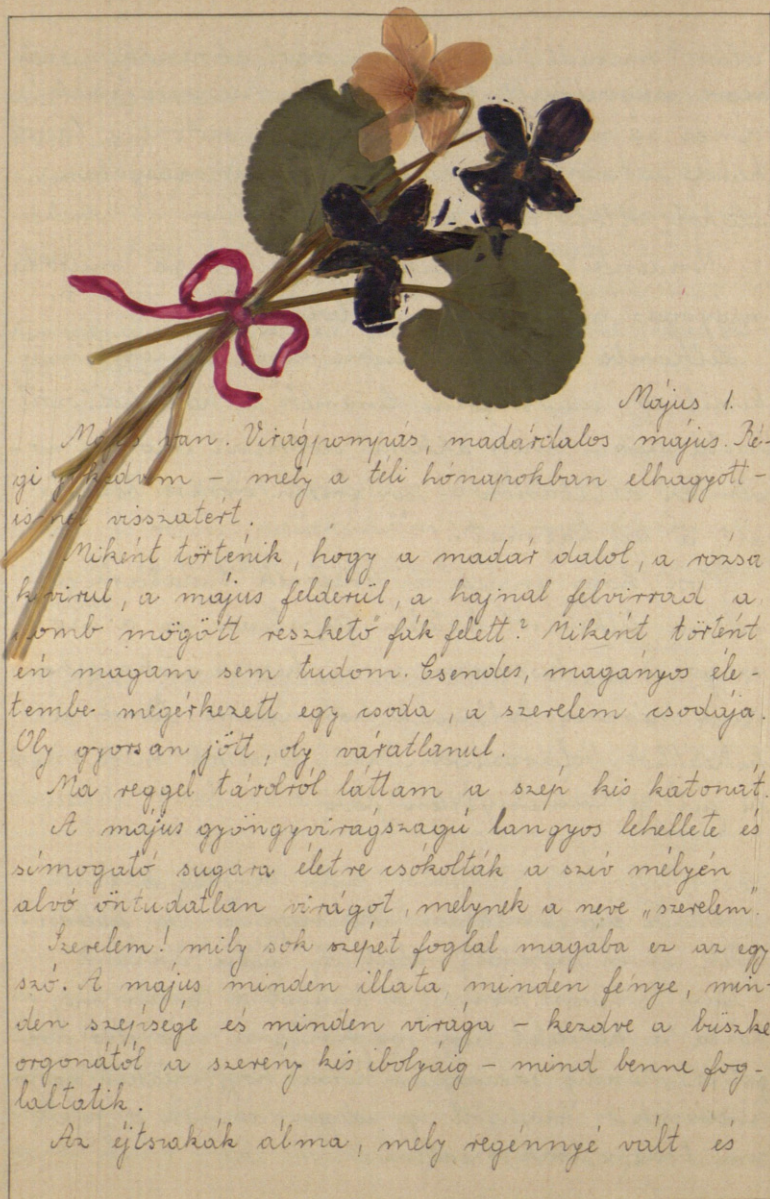 Május 1.
Május van! Virágpompás, madárdalos május. Ré-
gi jókedvem – mely a téli hónapokban elhagyott –
ismét visszatért.
Miként történik, hogy a madár dalol, a rózsa
kivirul, a május felderül, a hajnal felvirrad a
domb mögött reszkető fák felett? Miként történt
én magam sem tudom. Csendes, magányos éle-
tembe megérkezett egy csoda, a szerelem csodája.
Oly gyorsan jött, oly váratlanul.
Ma reggel távolról láttam a szép kis katonát.
A május gyöngyvirágszagú langyos lehellete és
simogató sugara életre csókolták a szív mélyén
alvó öntudatlan virágot, melynek a neve „szerelem".
Szerelem! mily sok szépet foglal magába ez az egy
szó. A május minden illata, minden fénye, min-
den szépsége és minden virága – kezdve a büszke
orgonától a szerény kis ibolyáig – mind benne fog-
laltatik.
Az éjtszakák álma, mely regénnyé vált és